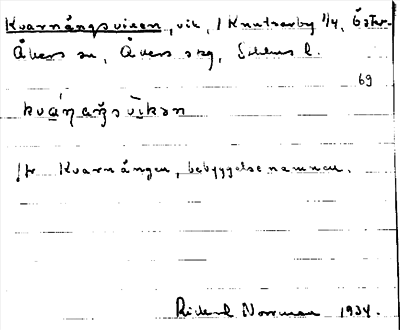 Kvarnängsviken, vik, i Knutsarby 1/4, Öster-
Åkers sn, Åkers skg, Sthlms l.
69
kvaŋaŋsvikən
Jfr Kvarnängen, bebyggelsenamnen.
Rickard Norrman 1934.